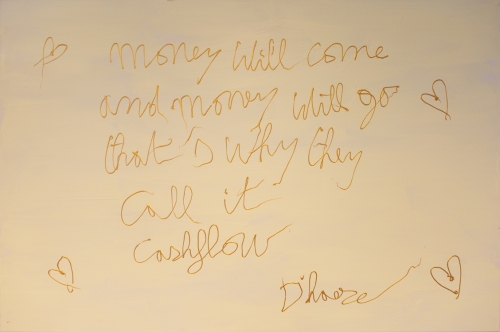 money will come
and money will go
that's why they
call it
cashflow
D'haeze